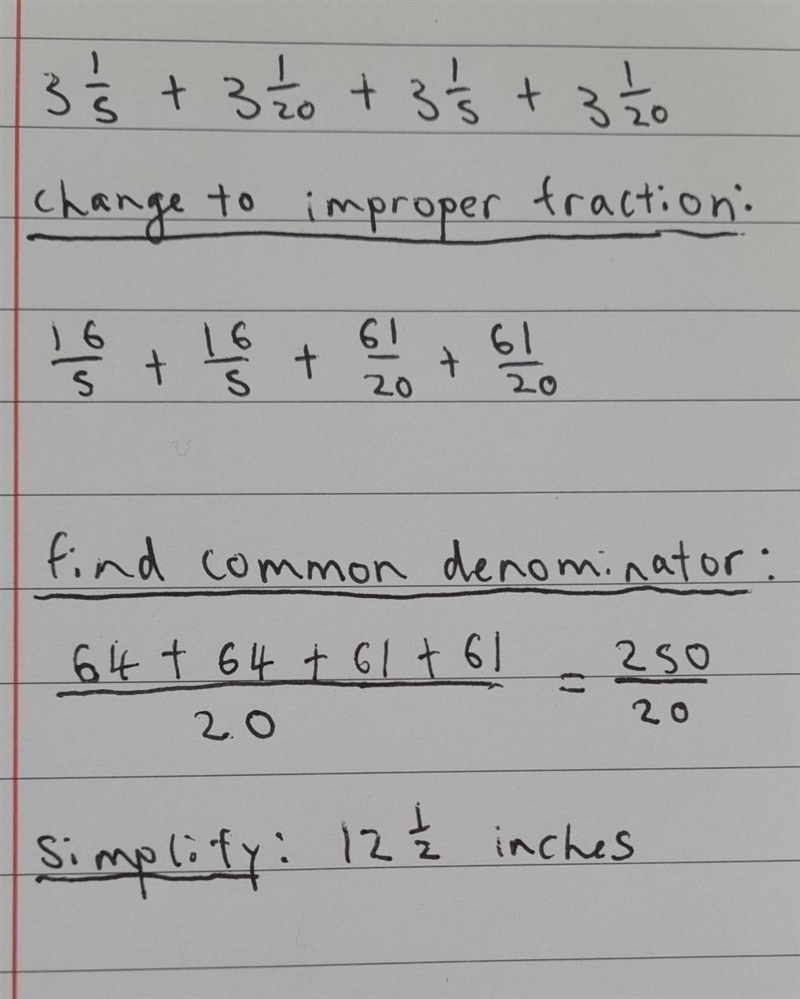 3 1/5 + 3 1/20 + 3 1/5 + 3 1/20
change to improper fraction:
16/5 + 16/5 + 61/20 + 61/20
find common denominator:
64 + 64 + 61 + 61 / 20 = 250/20
simplify: 12 1/2 inches